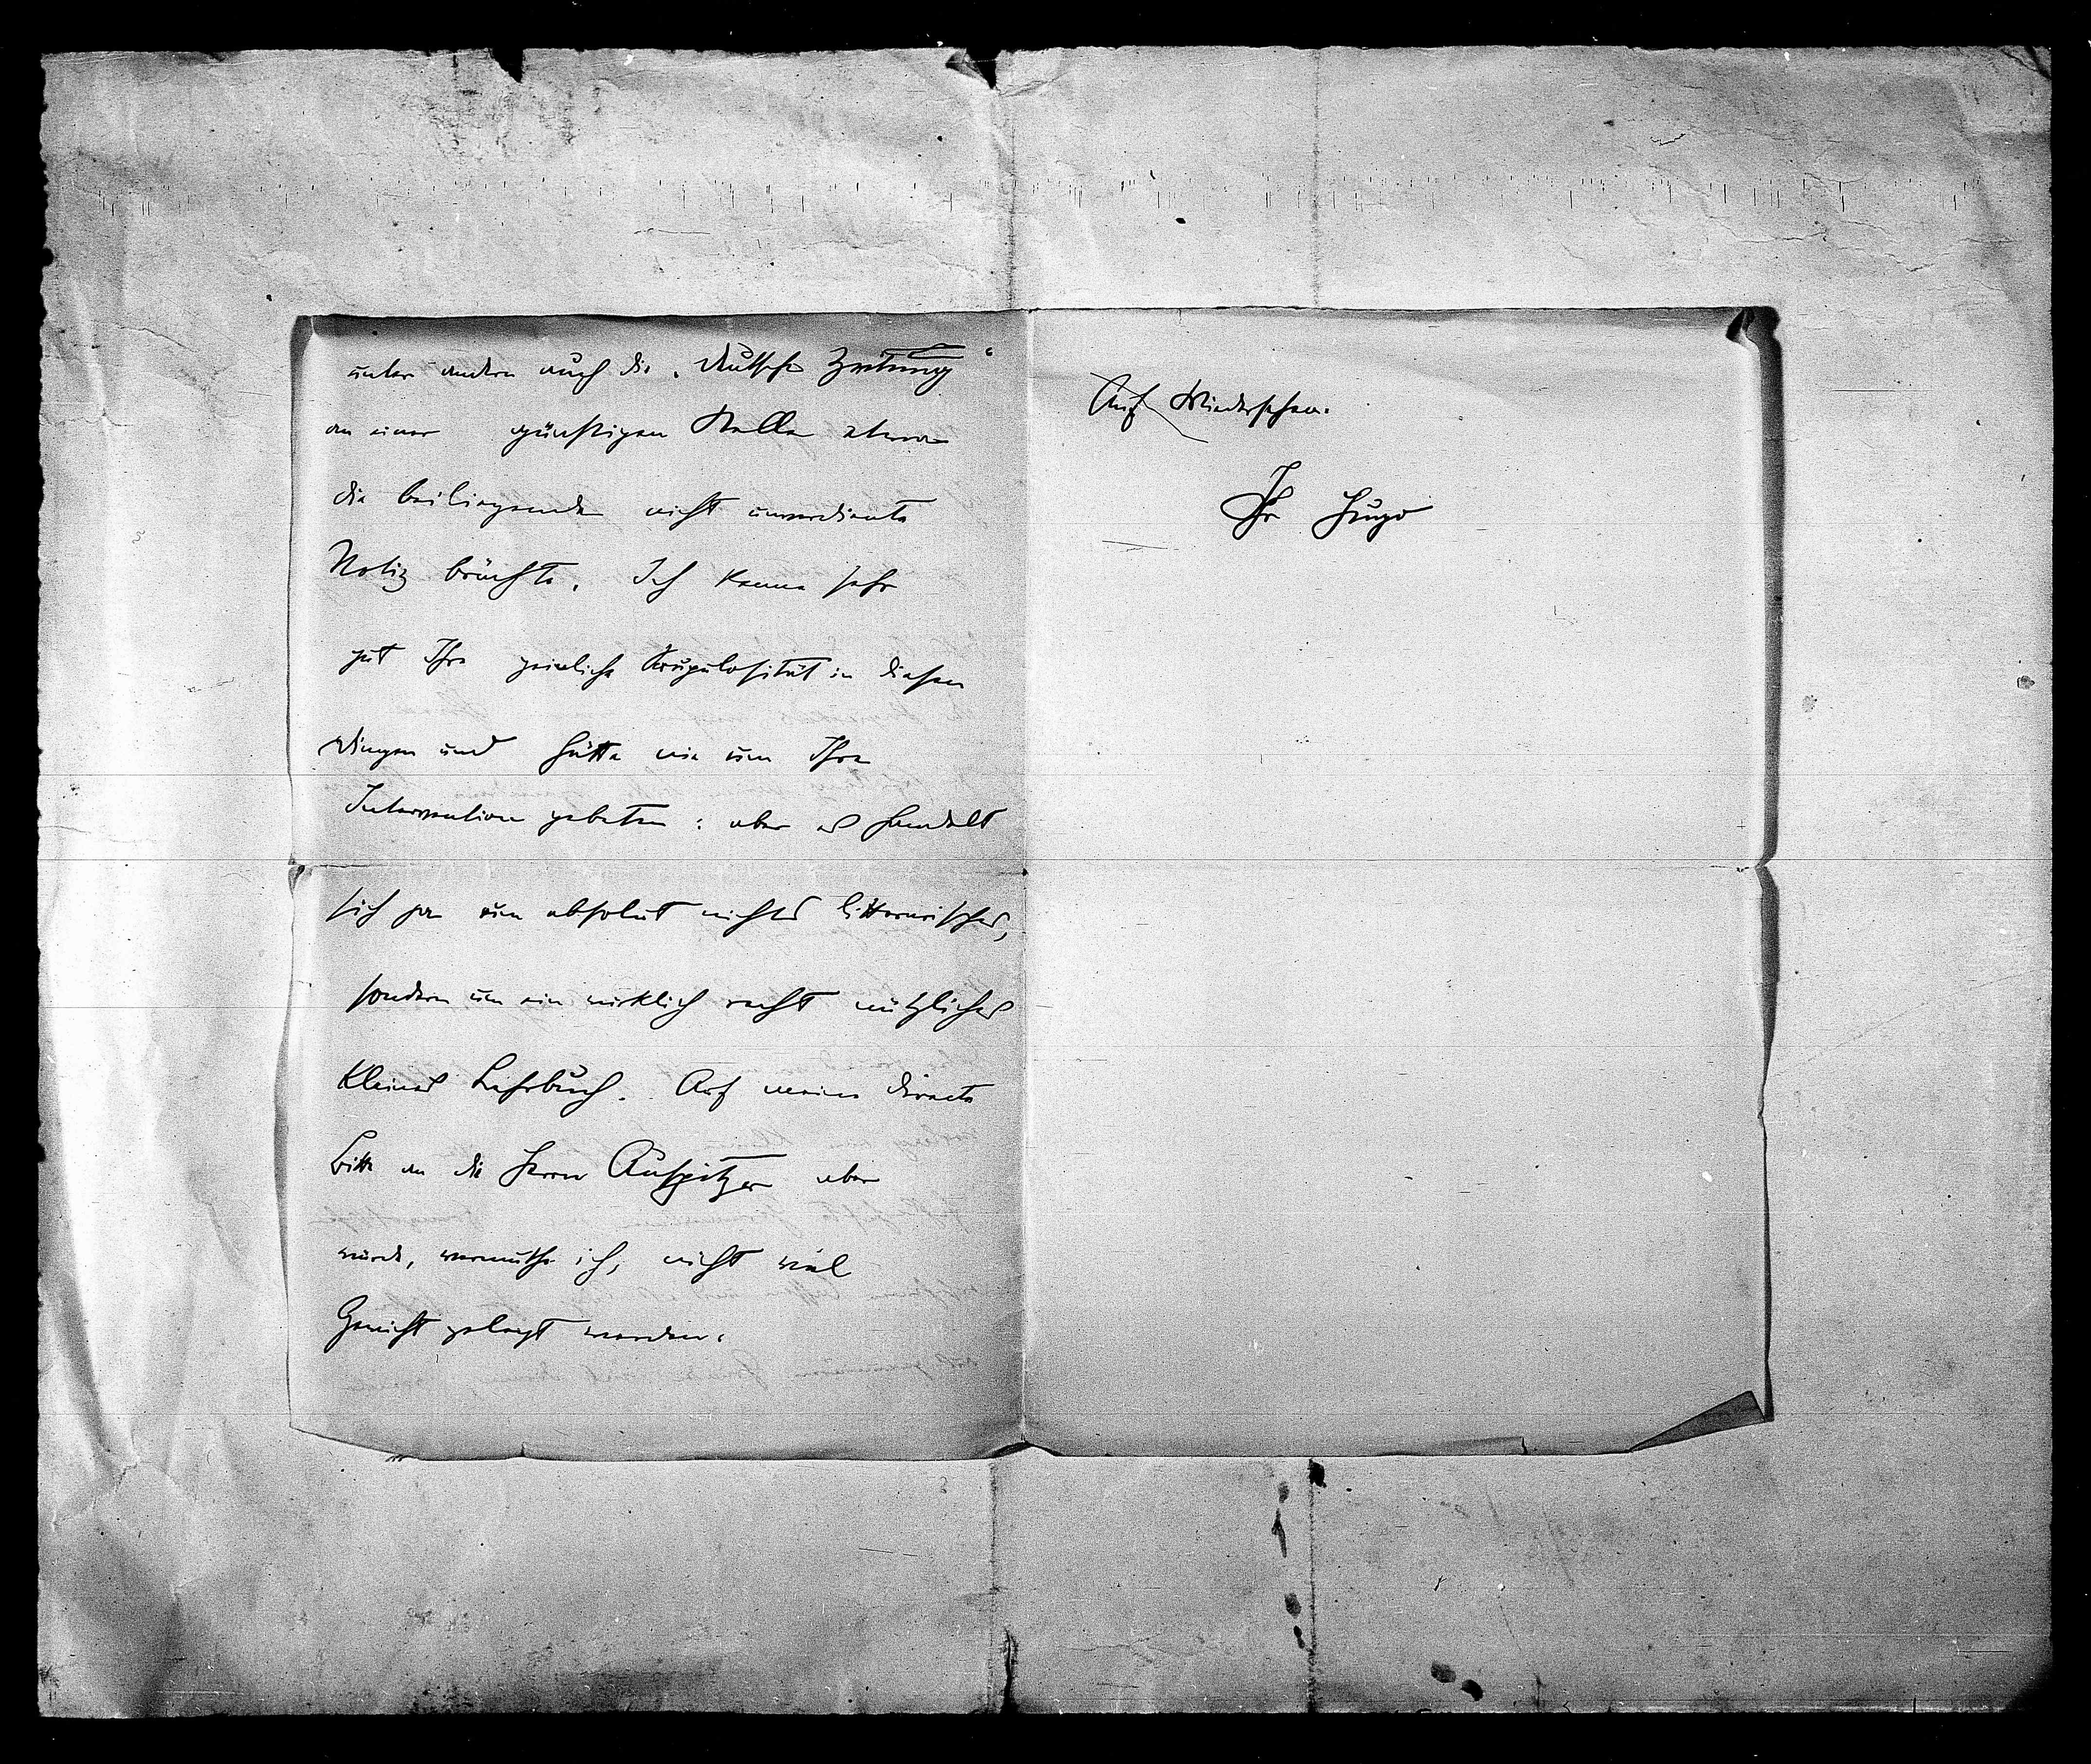 unter andern auch die „Deutsche Zeitung“
an einer günstigen Stelle etwa
die beiliegende nicht unverdiente
Notiz brächte. Ich kenne sehr
gut Ihre peinliche Skrupulosität in diesen
Dingen und hätte nie um Ihre
Intervention gebeten: aber es handelt
sich ja um absolut nichts litterarisches,
sondern um ein wirklich recht nützliches
kleines Lehrbuch. Auf meine directe
Bitte an die Herrn Auspitzer aber
würde, vermuthe ich, nicht viel
Gewicht gelegt werden.
Auf Wiedersehen.
Ihr Hugo